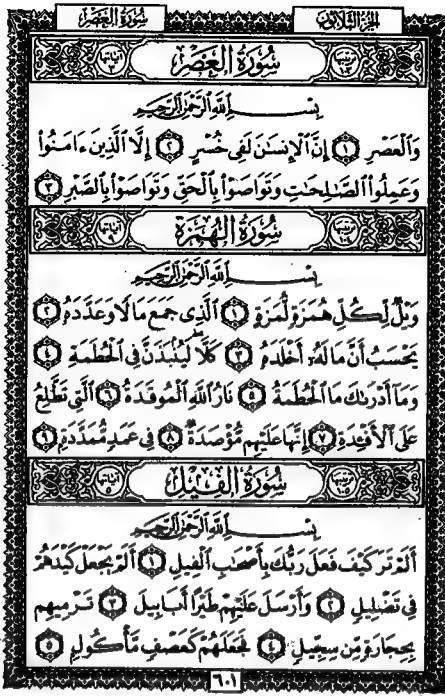 سُورَةُ العَصْرِ الجُزْءُ الثَّلَاثُونَ
سُورَةُ العَصْرِ
بِسْمِ اللَّهِ الرَّحْمَٰنِ الرَّحِيمِ
وَالْعَصْرِ ١ إِنَّ الْإِنسَٰنَ لَفِى خُسْرٍ ٢ إِلَّا الَّذِينَ ءَامَنُوا
وَعَمِلُوا الصَّٰلِحَٰتِ وَتَوَاصَوْا بِالْحَقِّ وَتَوَاصَوْا بِالصَّبْرِ ٣
سُورَةُ الهُمَزَةِ
بِسْمِ اللَّهِ الرَّحْمَٰنِ الرَّحِيمِ
وَيْلٌ لِّكُلِّ هُمَزَةٍ لُّمَزَةٍ ١ الَّذِى جَمَعَ مَالًا وَعَدَّدَهُ ٢
يَحْسَبُ أَنَّ مَالَهُ أَخْلَدَهُ ٣ كَلَّا لَيُنۢبَذَنَّ فِى الْحُطَمَةِ ٤
وَمَا أَدْرَىٰكَ مَا الْحُطَمَةُ ٥ نَارُ اللَّهِ الْمُوقَدَةُ ٦ الَّتِى تَطَّلِعُ
عَلَى الْأَفْـِٔدَةِ ٧ إِنَّهَا عَلَيْهِم مُّؤْصَدَةٌ ٨ فِى عَمَدٍ مُّمَدَّدَةٍ ٩
سُورَةُ الفِيلِ
بِسْمِ اللَّهِ الرَّحْمَٰنِ الرَّحِيمِ
أَلَمْ تَرَ كَيْفَ فَعَلَ رَبُّكَ بِأَصْحَٰبِ الْفِيلِ ١ أَلَمْ يَجْعَلْ كَيْدَهُمْ
فِى تَضْلِيلٍ ٢ وَأَرْسَلَ عَلَيْهِمْ طَيْرًا أَبَابِيلَ ٣ تَرْمِيهِم
بِحِجَارَةٍ مِّن سِجِّيلٍ ٤ فَجَعَلَهُمْ كَعَصْفٍ مَّأْكُولٍ ٥
٦٠١